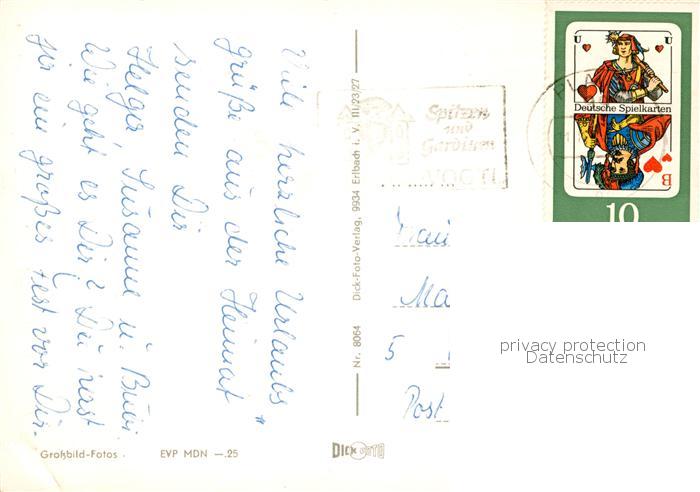 Viele herzliche Urlaubs-
grüße aus der Heimat
senden Dir
Helga Susanne u. Bubi.
Wie geht es Dir? Du hast
ja ein großes Fest vor Dir.
Großbild-Fotos
EVP MDN —.25
Nr. 8064 Dick-Foto-Verlag, 9934 Erlbach i. V. III/23/27
DICK FOTO
Spitzen
und
Gardinen
PLA
U U
Deutsche Spielkarten
B
10
5
Post
privacy protection
Datenschutz